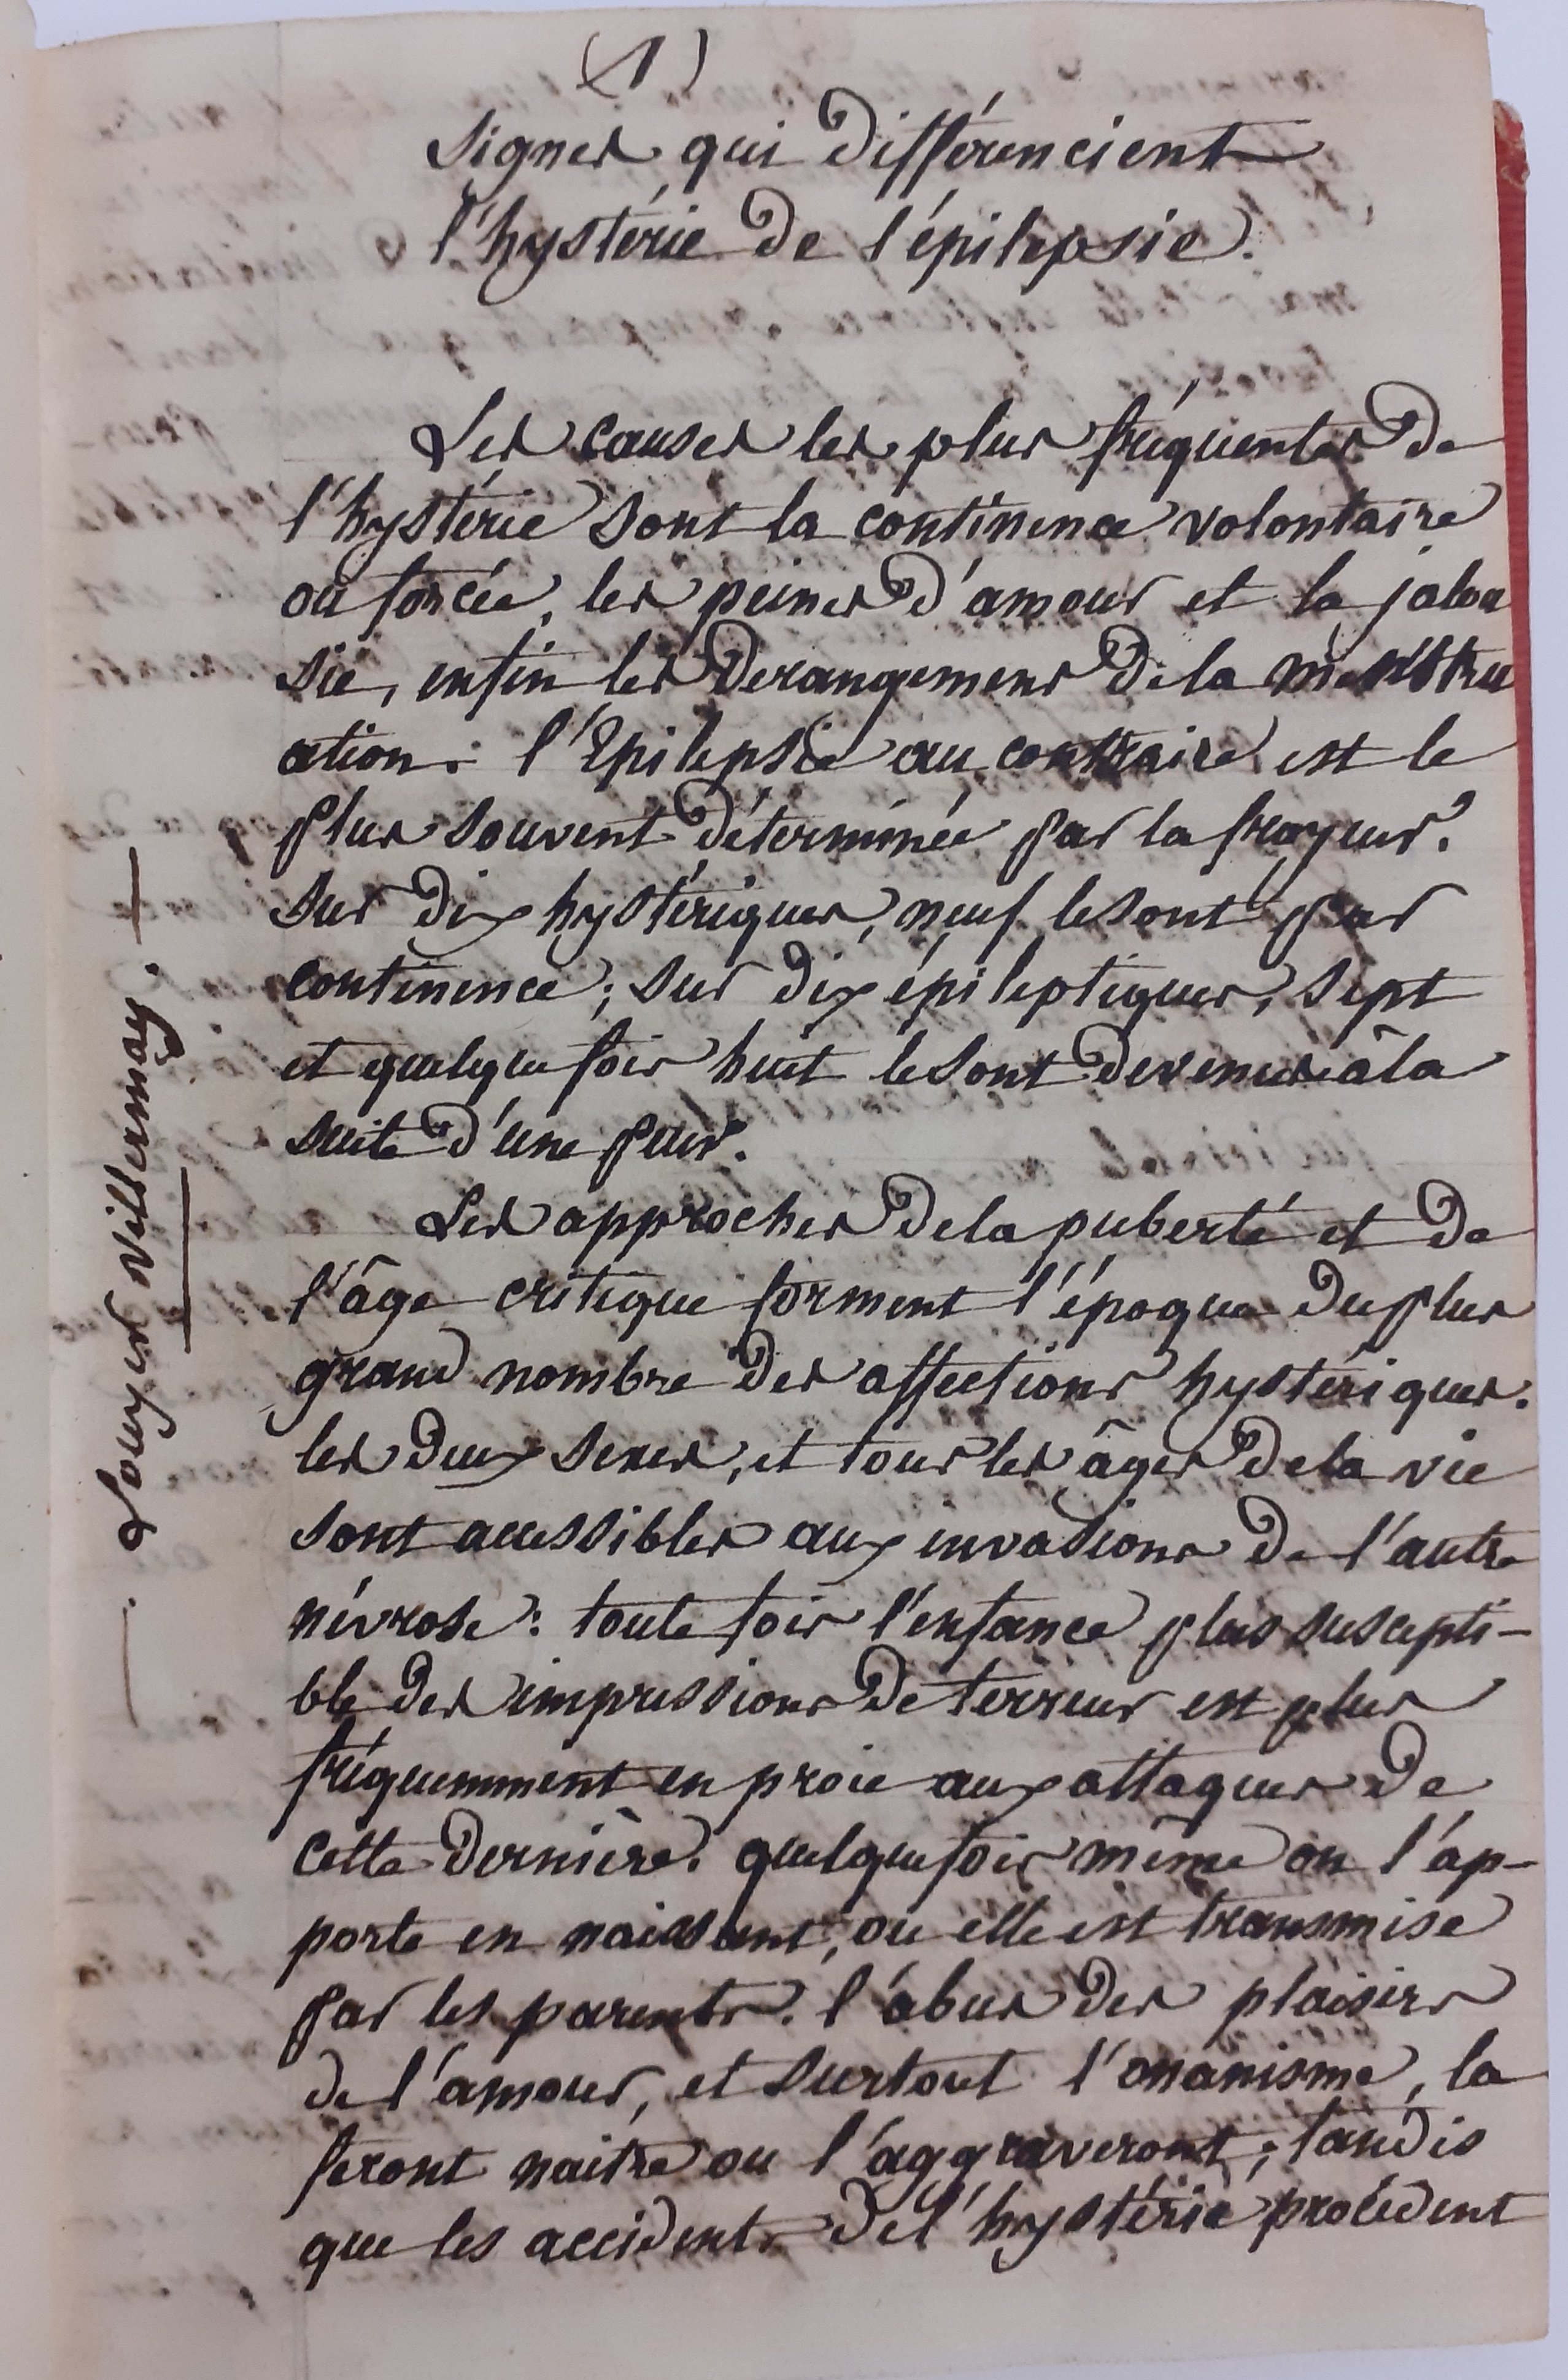 (1)
Signes qui différencient
l'hystérie de l'épilepsie.
Les causes les plus fréquentes de
l'hystérie sont la continence volontaire
ou forcée, les peines d'amour et la jalou
sie, enfin les derangemens de la menstru
ation : l'Epilepsie au contraire est le
plus souvent déterminée par la frayeur.
Sur dix hystériques, neuf le sont par
continence ; sur dix épileptiques, sept
et quelque fois huit le sont devenus à la
suite d'une peur.
Les approches de la puberté et de
l'âge critique forment l'époque du plus
grand nombre des affections hystériques.
les deux sexes, et tous les âges de la vie
sont accessibles aux invasions de l'autre
névrose : toute fois l'enfance plus suscepti-
ble des impressions de terreur est plus
fréquemment en proie aux attaques de
cette dernière. quelque fois même on l'ap-
porte en naissant, ou elle est transmise
par les parents. l'abus des plaisirs
de l'amour, et surtout l'onanisme, la
feront naitre ou l'aggraveront ; tandis
que les accidents de l'hystérie procèdent
— . Louyer Villermay . —